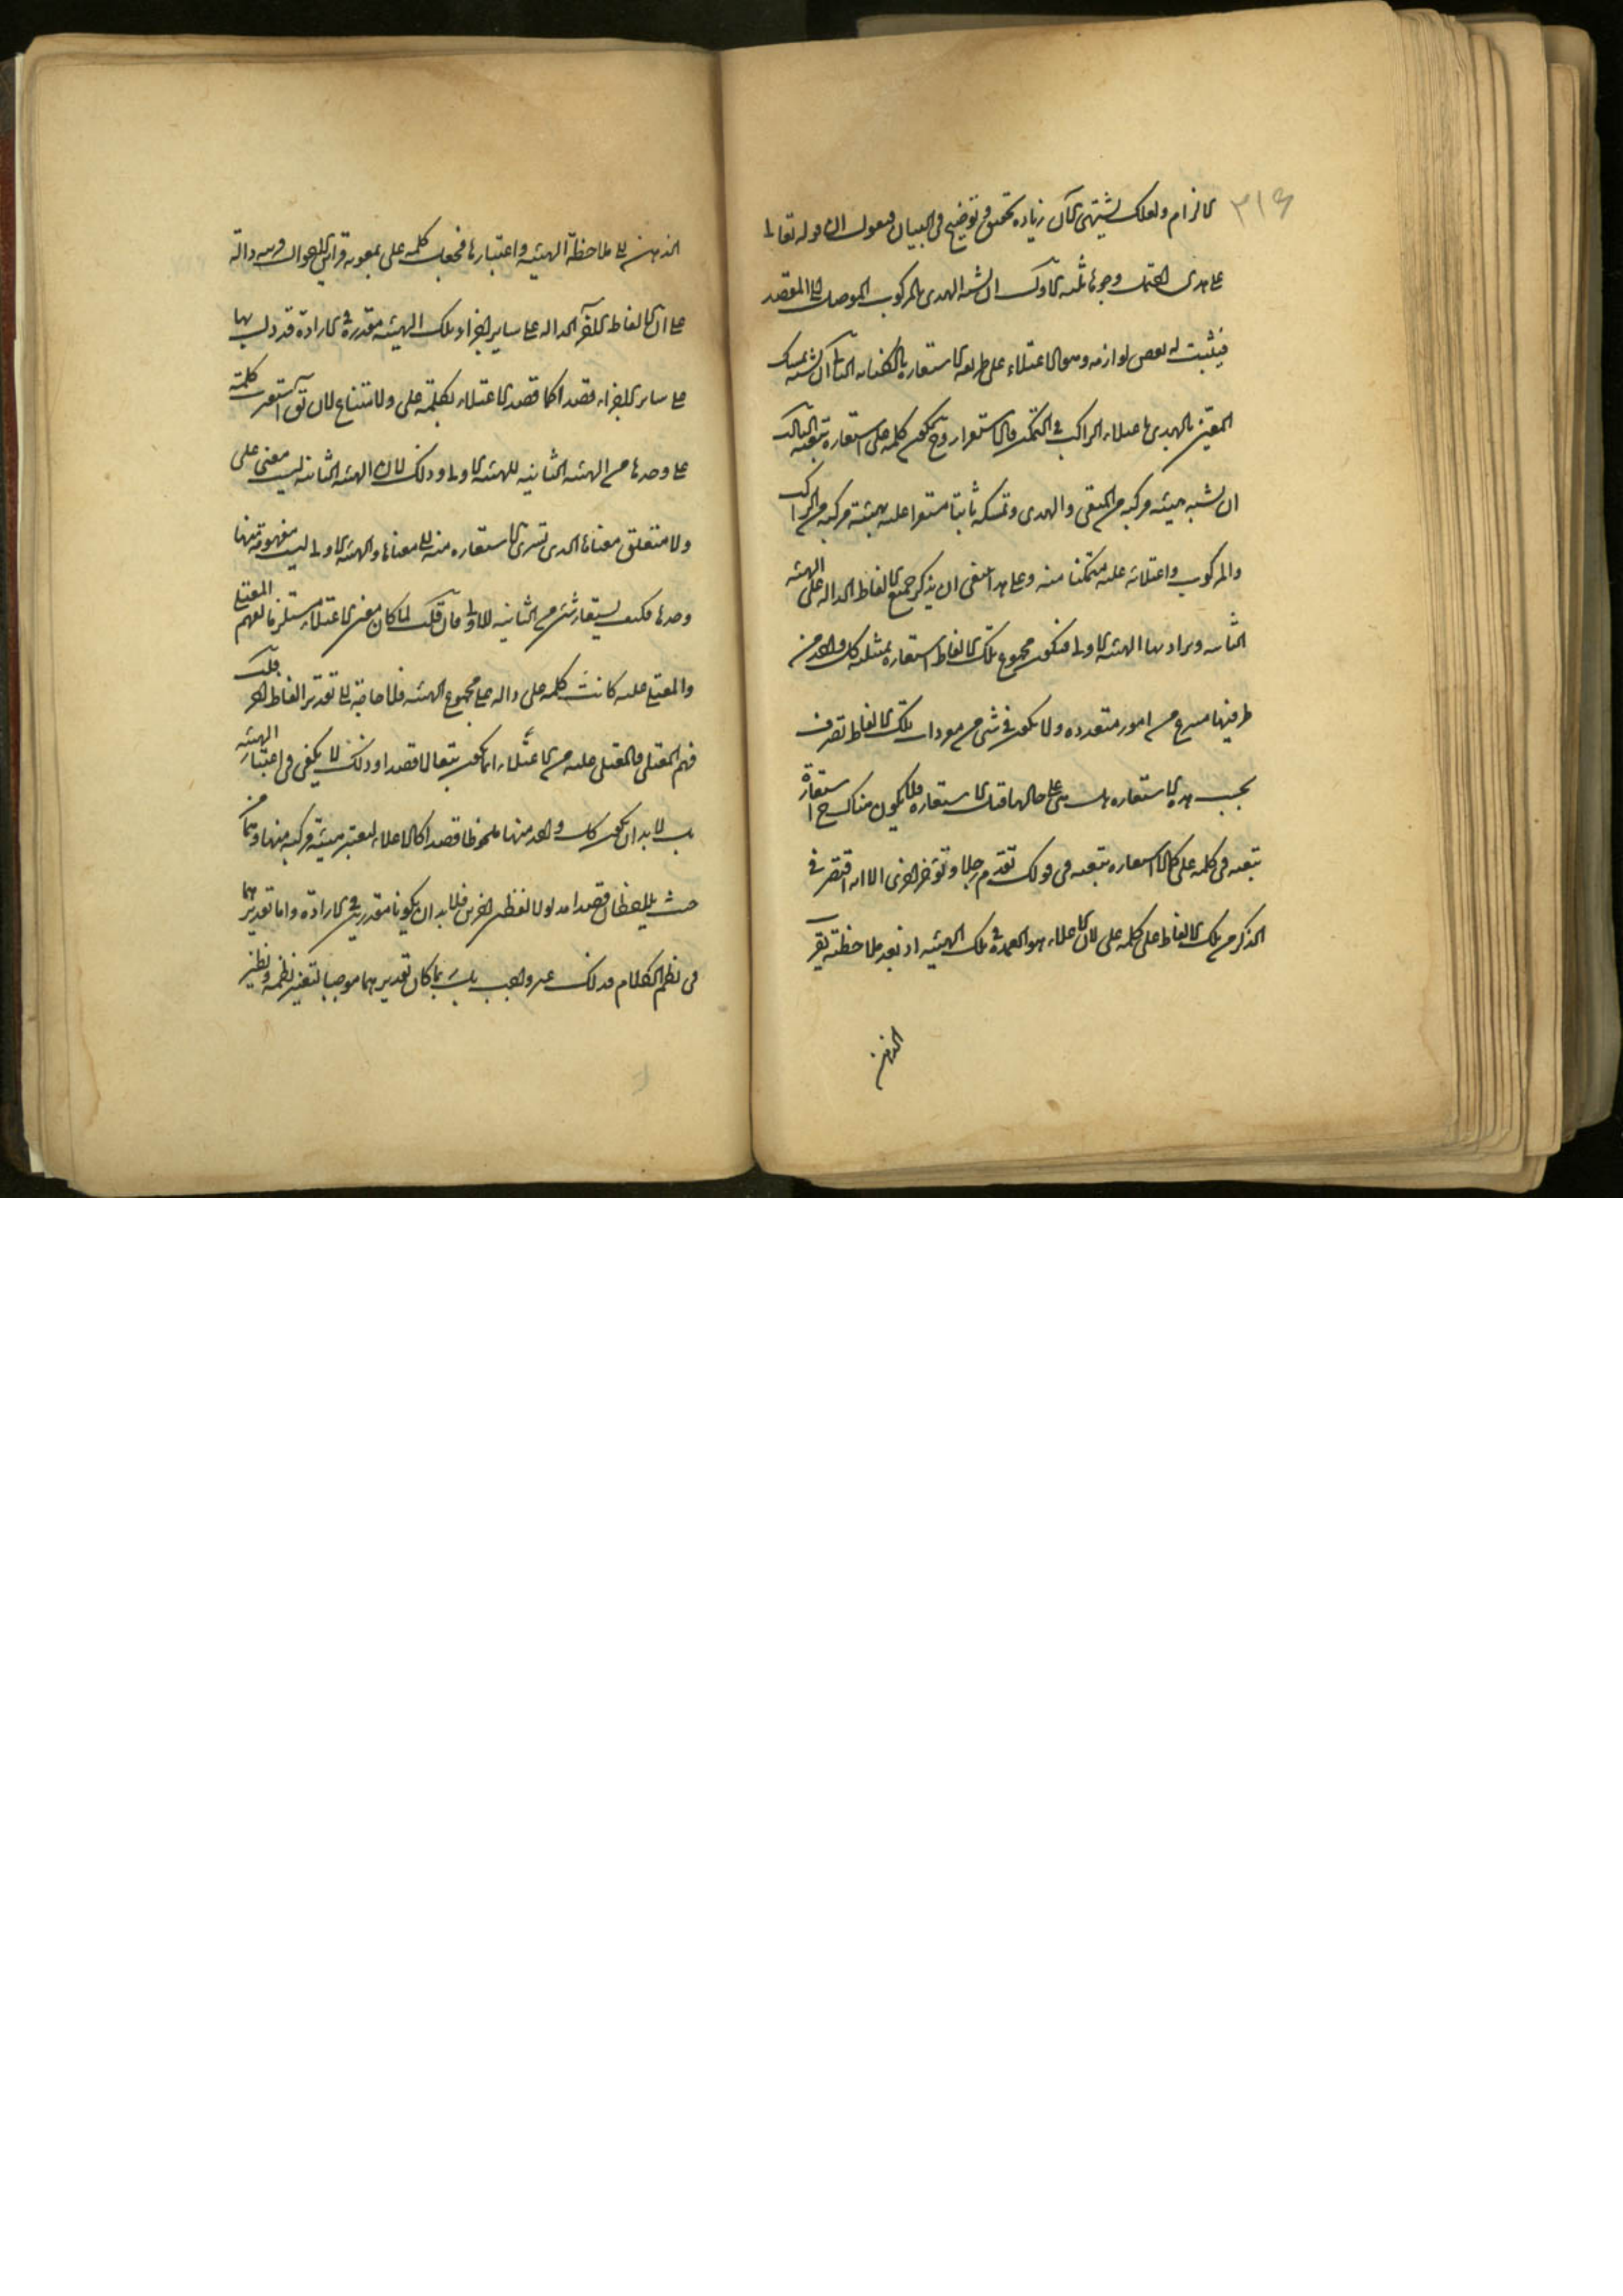 ٣١٤
الالزام ولعلك تشتهى الآن زيادة تحقيق وتوضيح فى البيان فنقول ان قوله تعالى
على هدى يحتمل وجوها ثلثة الاول ان يشبه الهدى بالمركوب الموصل الى المقصد
فيثبت له بعض لوازمه وهو الاعتلاء على طريقة الاستعارة بالكناية الثانى ان يشبه تمسك
المتقين بالهدى باعتلاء الراكب فى التمكن والاستقرار وح تكون كلمة على استعارة تبعية الثالث
ان يشبه هيئة مركبة من المتقى والهدى وتمسكه به ثابتا مستقرا عليه بهيئة مركبة من الراكب
والمركوب واعتلائه عليه متمكنا منه وعلى هذا ينبغى ان يذكر جميع الالفاظ الدالة على الهيئة
الثانية ويراد بها الهيئة الاولى فتكون مجموع تلك الالفاظ استعارة تمثيلية كل واحد من
طرفيها منتزع من امور متعددة ولا يكون فى شئ من مفردات تلك الالفاظ تصرف
بحسب هذه الاستعارة بل هى على حالها قبل الاستعارة فلا يكون هناك ح استعارة
تبعية فى كلمة على كما لا استعارة تبعية فى قولك تقدم رجلا وتؤخر اخرى الا انه اقتصر فى
الذكر من تلك الالفاظ على كلمة على لان الاعتلاء هو العمدة فى تلك الهيئة اذ بعد ملاحظته يقرب
الذهن
الذهن الى ملاحظة الهيئة واعتبارها فجعل كلمة على بمعونة قرائن الاحوال قرينة دالة
على ان الالفاظ الاخر الدالة على ساير اجزاء تلك الهيئة مقدرة فى الارادة قد دل بها
على ساير الاجزاء قصدا كما قصد الاعتلاء بكلمة على ولا امتناع لان يق استعيرت كلمة
على وحدها من الهيئة الثانية للهيئة الاولى وذلك لان الهيئة الثانية ليست معنى على
ولا متعلق معناها الذى تسرى الاستعارة منه الى معناها والهيئة الاولى ليست مفهومة منها
وحدها فكيف يستعار شئ من الثانية للاولى فان قلت لما كان معنى الاعتلاء مستلزما لفهم المعتلى
والمعتلى عليه كانت كلمة على دالة على مجموع الهيئة فلا حاجة الى تقدير الفاظ اخر قلت
فهم المعتلى والمعتلى عليه من الاعتلاء انما يكون تبعا لا قصدا وذلك لا يكفى فى اعتبار الهيئة
بل لا بد ان يكون كل واحد منها ملحوظا قصدا كالاعتلاء ليعتبر هيئة مركبة منها وهما من
حيث يلاحظان قصدا مدلولا لفظين اخرين فلا بد ان يكونا مقدرين فى الارادة واما تقديرهما
فى نظم الكلام فذلك غير واجب بل ربما كان تقديرهما موجبا لتغيير نظمه ونظير